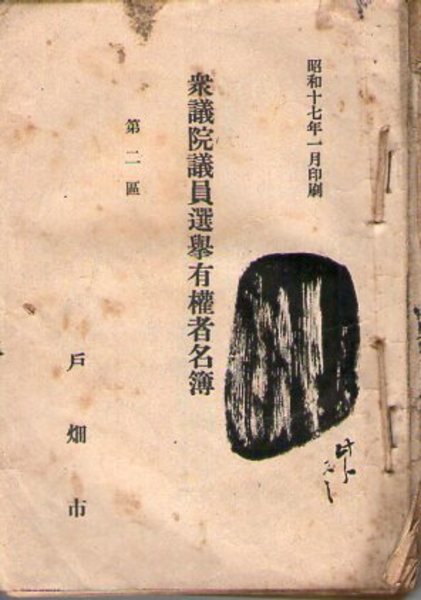 昭和十七年一月印刷
衆議院議員選擧有權者名簿
第二區
戶畑市